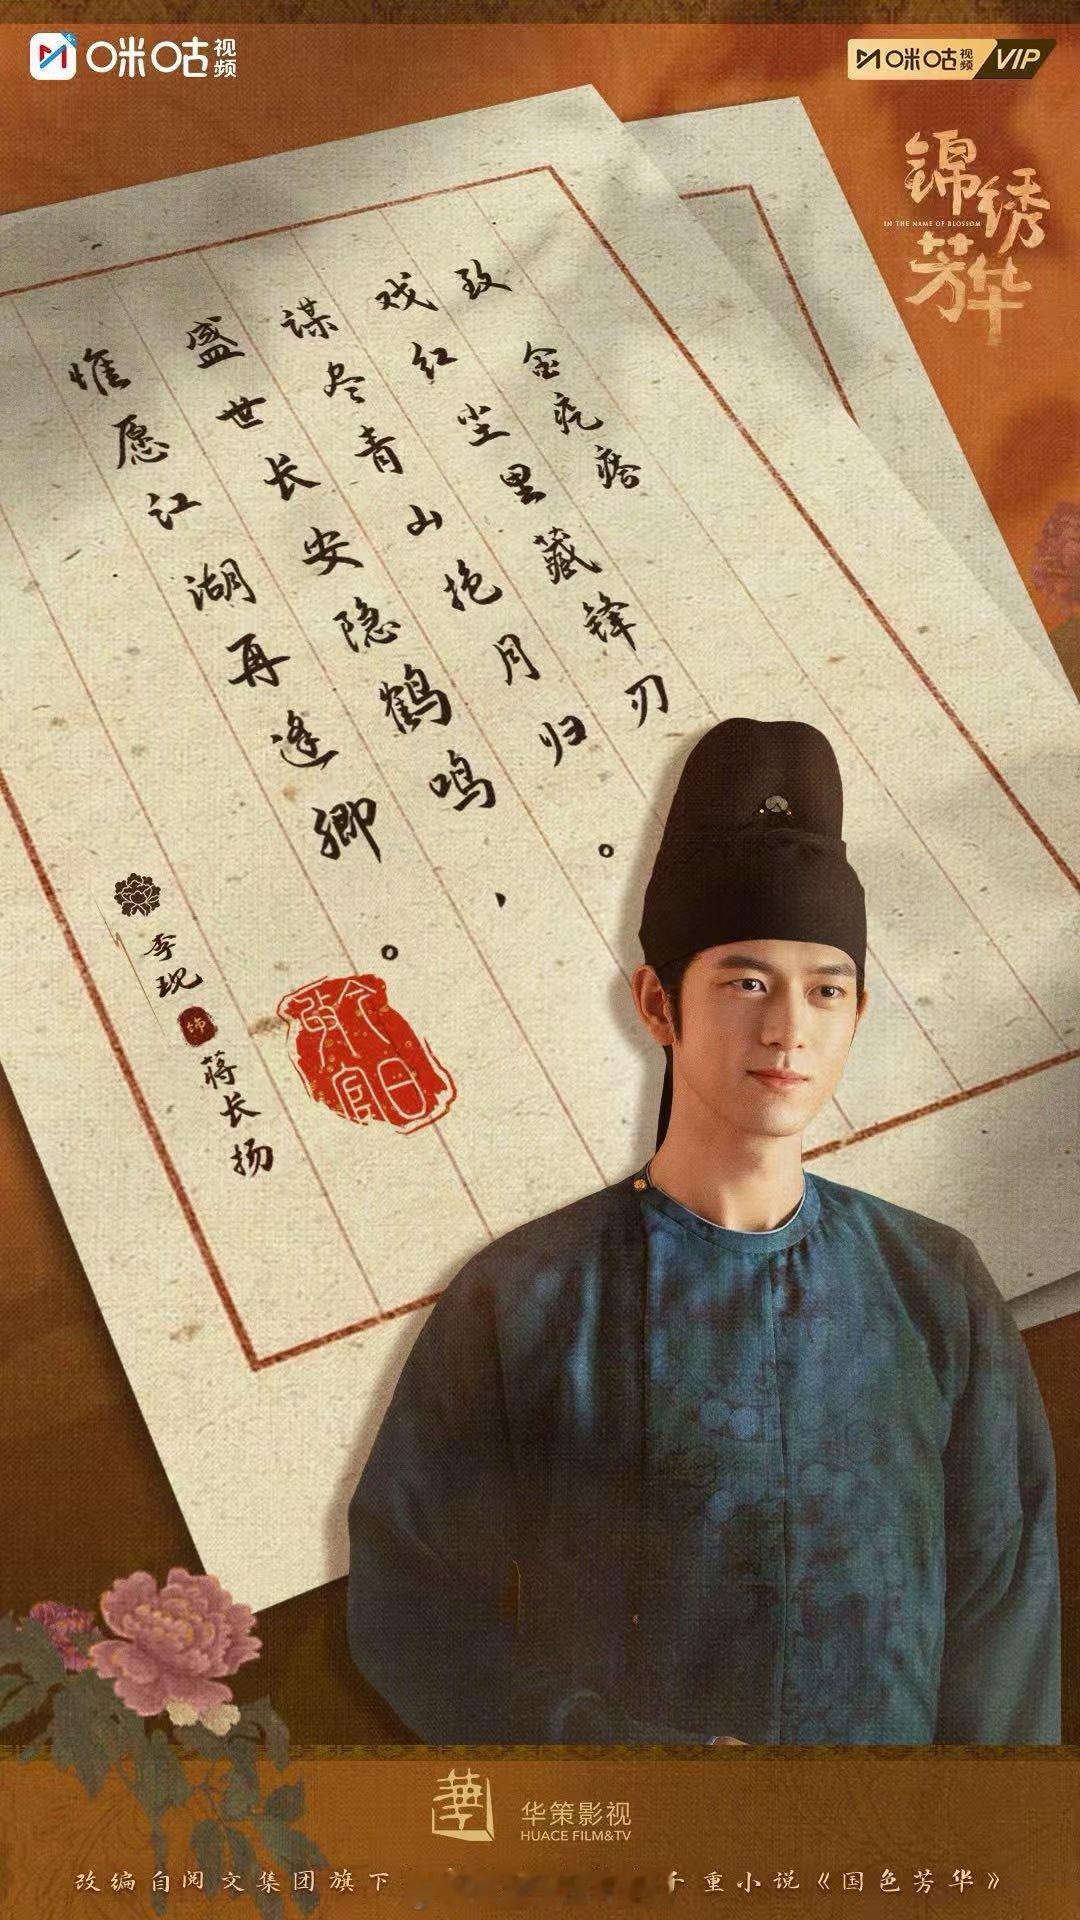 咪咕视频
咪咕视频 VIP
锦绣芳华
IN THE NAME OF BLOSSOM
致
金疙瘩
戏红尘里藏锋刃
谋尽青山抱月归。
盛世长安隐鹤鸣、
惟愿江湖再逢卿。
李现 饰 蒋长扬
今日
华策影视
HUACE FILM&TV
改编自阅文集团旗下
千重小说《国色芳华》